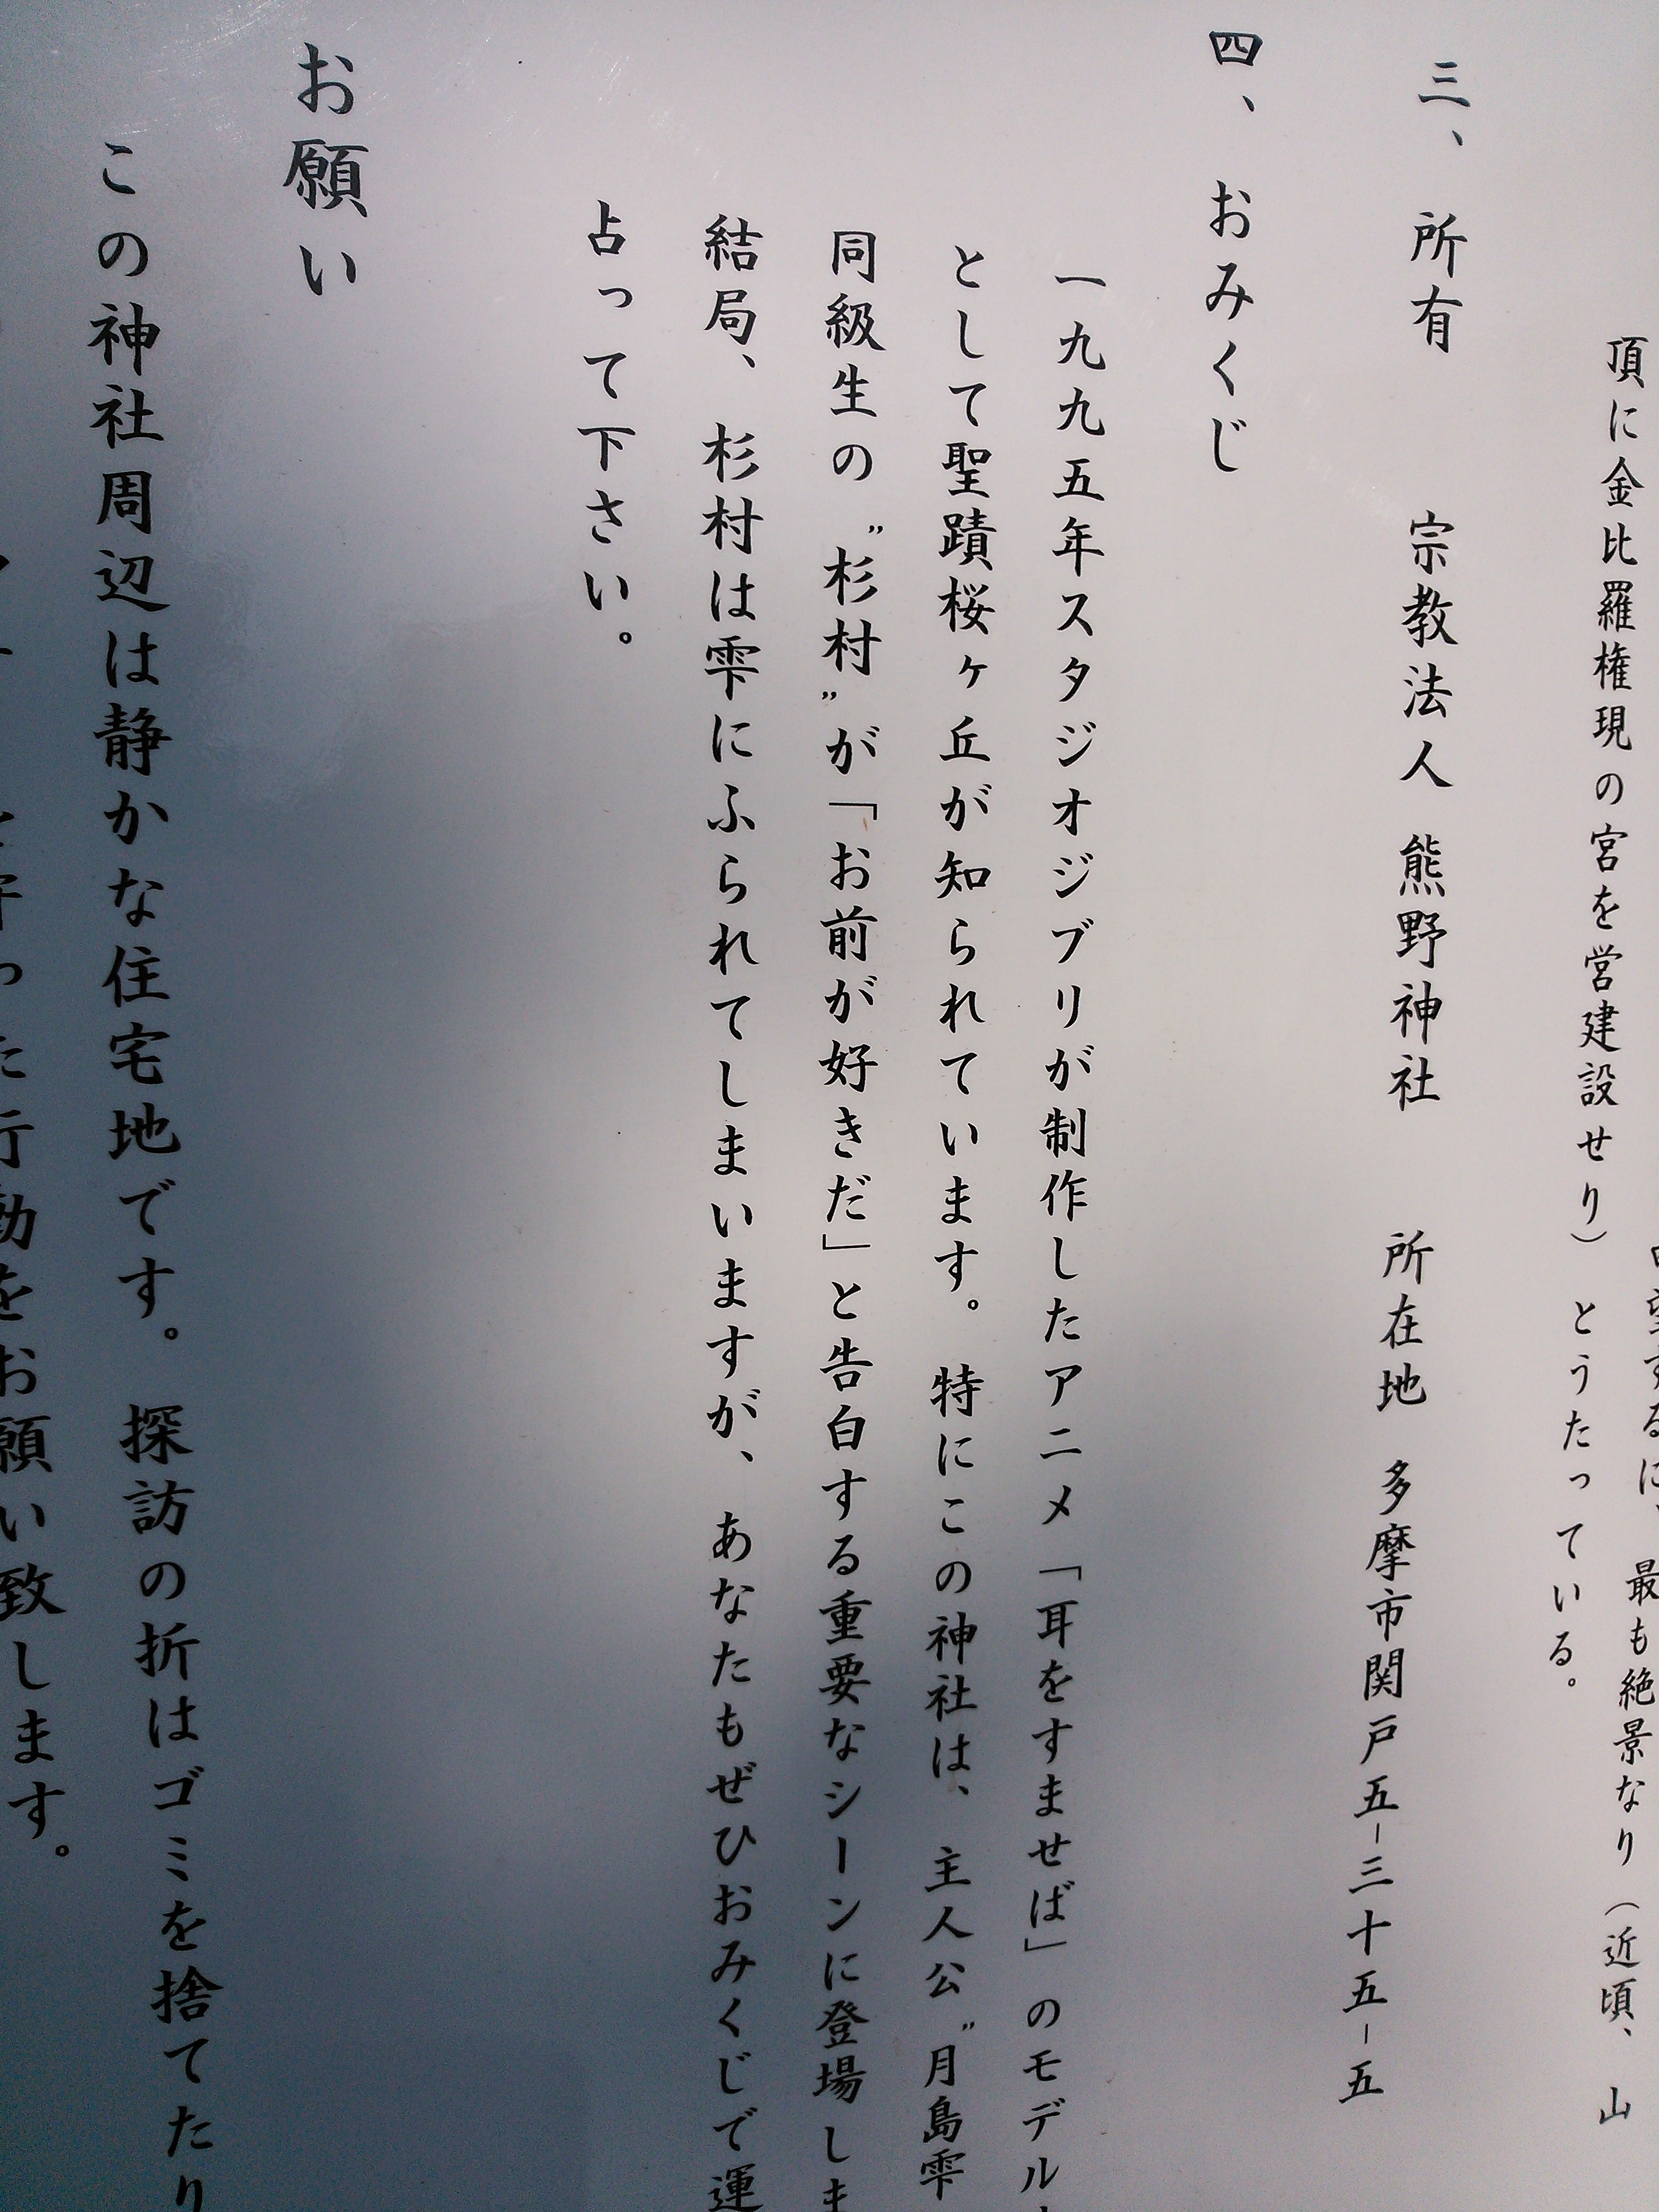 望するに、最も絶景なり（近頃、山
頂に金比羅権現の宮を営建設せり）とうたっている。
三、所有　宗教法人　熊野神社　所在地　多摩市関戸五－三十五－五
四、おみくじ
一九九五年スタジオジブリが制作したアニメ「耳をすませば」のモデル
として聖蹟桜ヶ丘が知られています。特にこの神社は、主人公〝月島雫
同級生の〝杉村〟が「お前が好きだ」と告白する重要なシーンに登場しま
結局、杉村は雫にふられてしまいますが、あなたもぜひおみくじで運
占って下さい。
お願い
この神社周辺は静かな住宅地です。探訪の折はゴミを捨てたり
行動をお願い致します。